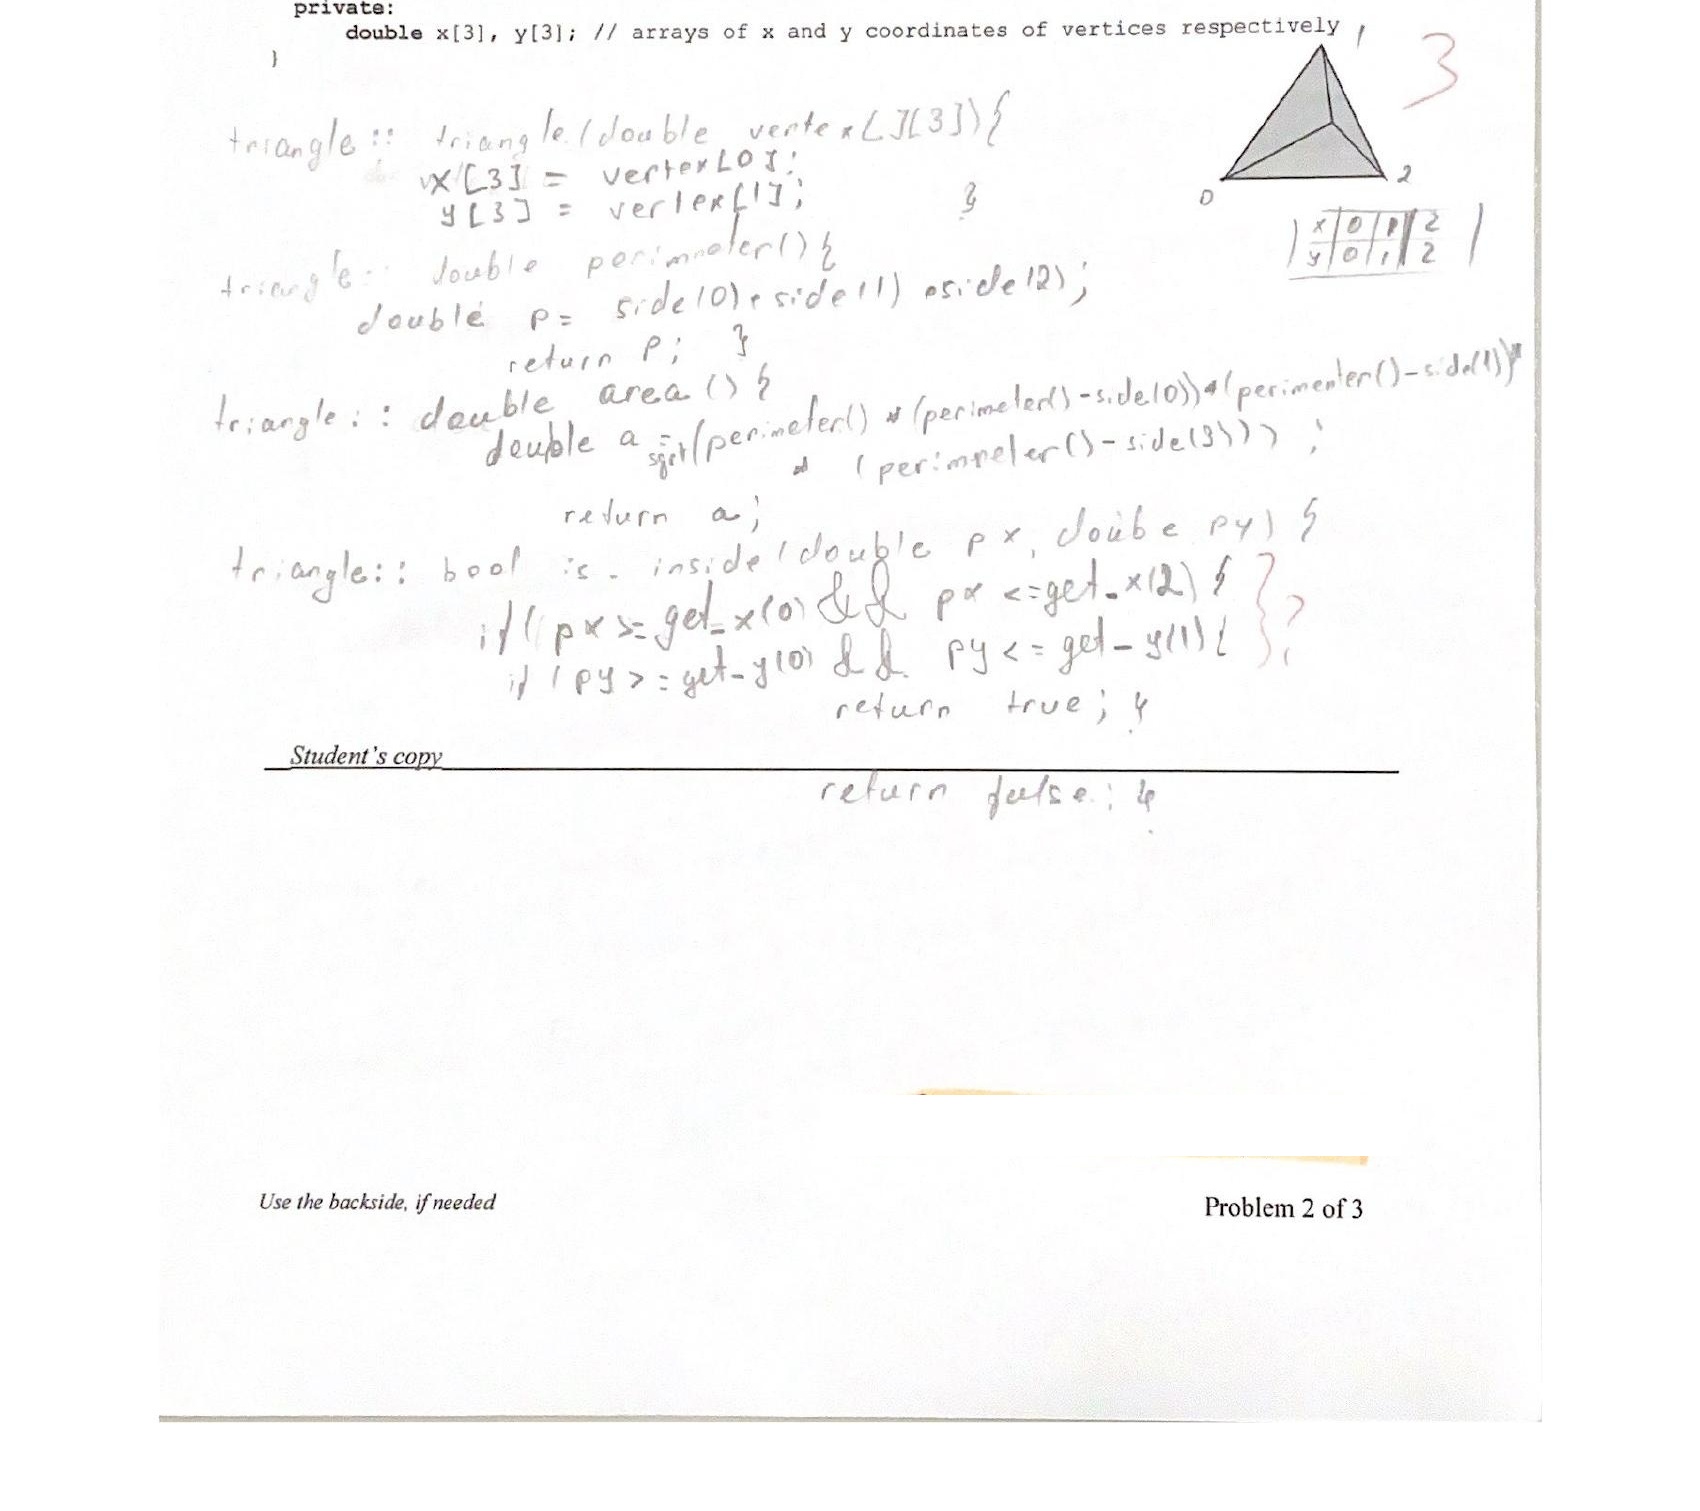 private:
double x[3], y[3]; // arrays of x and y coordinates of vertices respectively
}
1
3
0
2
x 0 1 2
y 0 1 2
triangle:: triangle(double vertex[][3]){
x[3] = vertex[0];
y[3] = vertex[1]; }
triangle:: double perimneter(){
double p= side(0)+side(1)+side(2);
return p; }
triangle:: double area(){
double a = sqrt(perimeter() * (perimeter()-side(0))*(perimenter()-side(1))*
* (perimneter()-side(3)));
return a;
triangle:: bool is_inside(double px, doube py) {
if( px >= get_x(0) && px <=get_x(2) {
if (py >= get_y(0) && py <= get_y(1) {
?
return true; }
Student's copy
return false; }
Use the backside, if needed
Problem 2 of 3